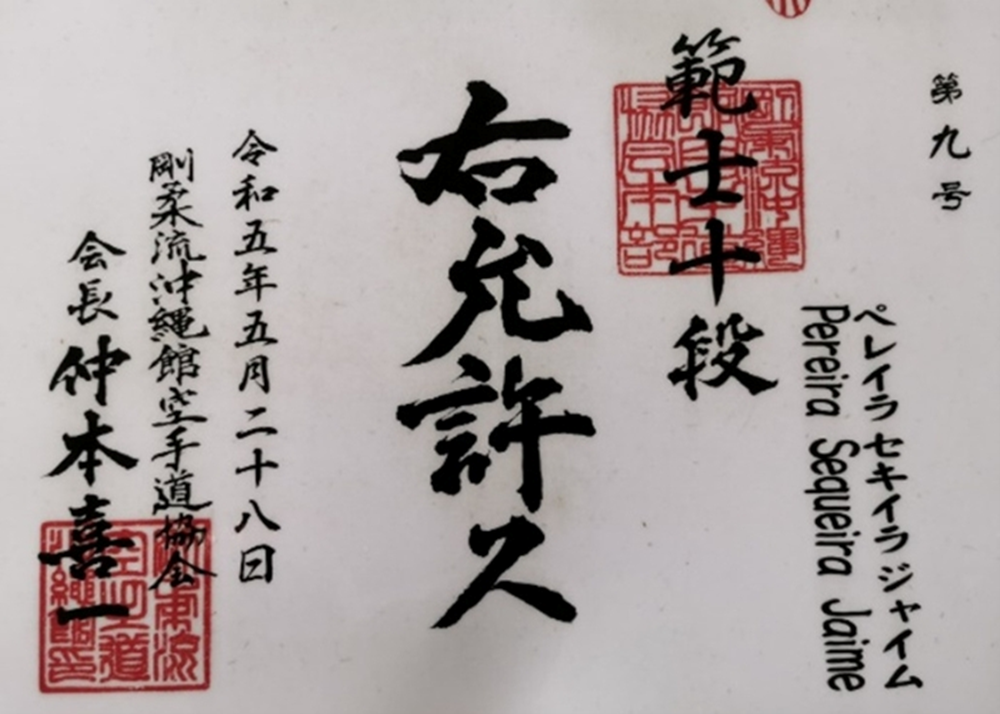 第九号
ペレイラ セキイラ ジャイム
Pereira Sequeira Jaime
範士十段
右允許ス
令和五年五月二十八日
剛柔流沖縄館空手道協会
会長 仲本喜一